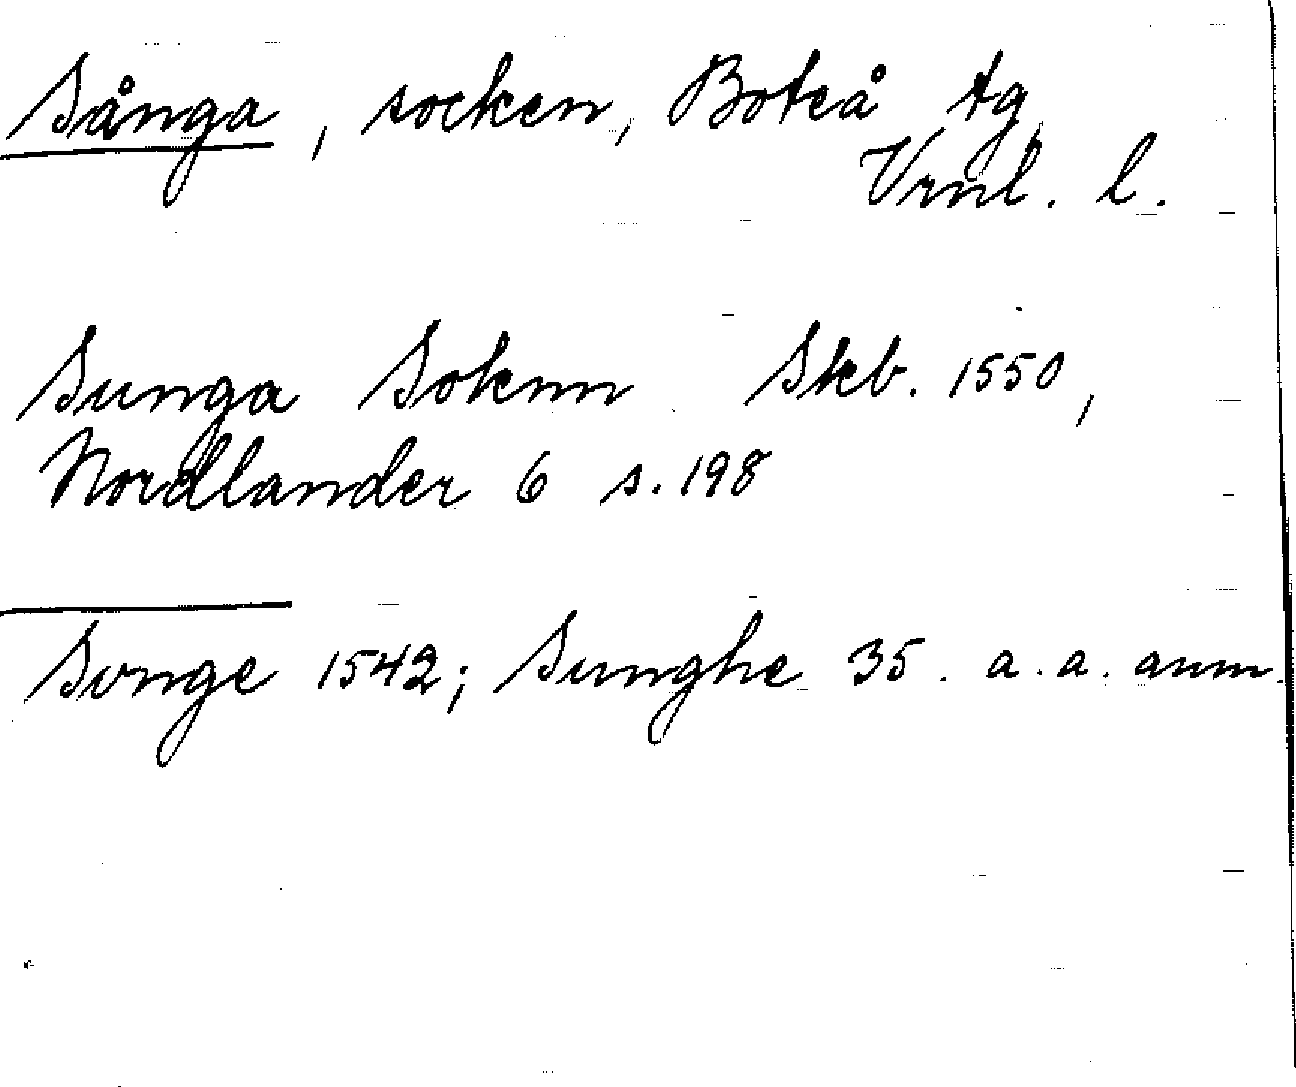 Sånga, socken, Boteå tg
Vrnl. l.
Sunga Soknn Skb. 1550,
Nordlander 6 s. 198
Songe 1542; Sunghe 35. a. a. anm.